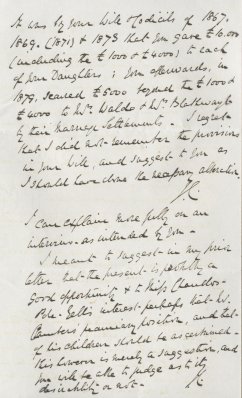 It was by your Will & Codicils of 1867,
1869, (1871) & 1873 that you gave £10.000
(including the £1000 & £4000) to each
of your Daughters; you afterwards, in
1879, secured £5000 beyond the £1000 &
£4000 to Mrs. Waldo & Mrs. Blathwayt
by their Marriage Settlements. I regret
that I did not remember the provisions
in your Will, and suggest to you as
I should have done the necessary alteration.
I can explain more fully on an
interview as intended by you.
I meant to suggest in my prior
letter that the present is possibly a
Good opportunity & to Miss Chandos-
Pole-Gell's interest perhaps that
pecuniary position, and that
of his children should be ascertained.
This however is merely a suggestion, and
you will be able to judge as to its
desirability or not.